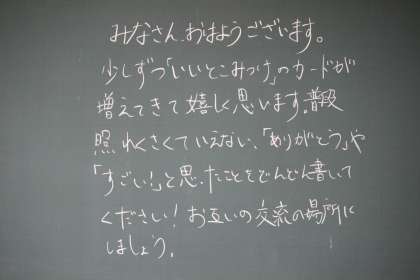 みなさん、おはようございます。
少しずつ「いいとこみっけ」のカードが
増えてきて嬉しく思います。普段
照れくさくていえない、「ありがとう」や
「すごい!」と思ったことをどんどん書いて
ください! お互いの交流の場所に
しましょう。